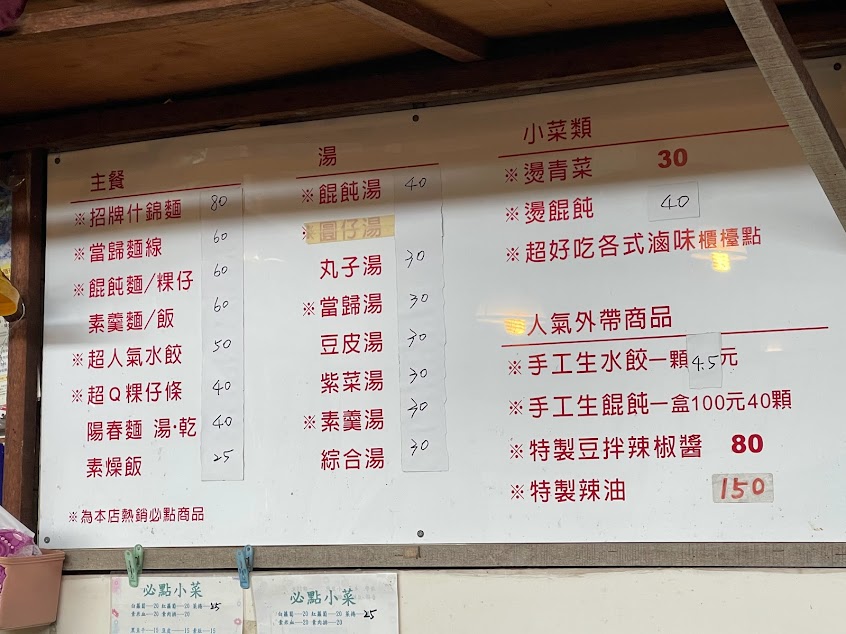 主餐
※招牌什錦麵 80
※當歸麵線 60
※餛飩麵/粿仔 60
素羹麵/飯 60
※超人氣水餃 50
※超Q粿仔條 40
陽春麵 湯·乾 40
素燥飯 25
※為本店熱銷必點商品
湯
※餛飩湯 40
※圓仔湯
丸子湯 30
※當歸湯 30
豆皮湯 30
紫菜湯 30
※素羹湯 30
綜合湯 30
小菜類
※燙青菜 30
※燙餛飩 40
※超好吃各式滷味櫃檯點
人氣外帶商品
※手工生水餃一顆4.5元
※手工生餛飩一盒100元40顆
※特製豆拌辣椒醬 80
※特製辣油 150
必點小菜
必點小菜